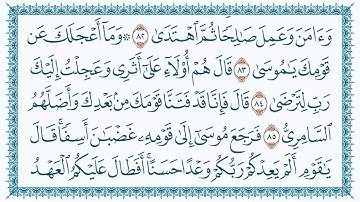 وَءَامَنَ وَعَمِلَ صَٰلِحٗا ثُمَّ ٱهۡتَدَىٰ ٨٢ ۞ وَمَآ أَعۡجَلَكَ عَن
قَوۡمِكَ يَٰمُوسَىٰ ٨٣ قَالَ هُمۡ أُوْلَآءِ عَلَىٰٓ أَثَرِي وَعَجِلۡتُ إِلَيۡكَ
رَبِّ لِتَرۡضَىٰ ٨٤ قَالَ فَإِنَّا قَدۡ فَتَنَّا قَوۡمَكَ مِنۢ بَعۡدِكَ وَأَضَلَّهُمُ
ٱلسَّامِرِيُّ ٨٥ فَرَجَعَ مُوسَىٰٓ إِلَىٰ قَوۡمِهِۦ غَضۡبَٰنَ أَسِفٗاۚ قَالَ
يَٰقَوۡمِ أَلَمۡ يَعِدۡكُمۡ رَبُّكُمۡ وَعۡدًا حَسَنًاۚ أَفَطَالَ عَلَيۡكُمُ ٱلۡعَهۡدُ